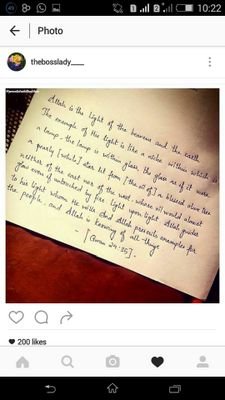 10:22
Photo
thebosslady___
Allah is the light of the heavens and the earth
The example of the light is like a niche within which is
a lamp, the lamp is within glass, the glass as if it were
a pearly [white] star lit from [the oil of] a blessed olive tree
neither of the east nor of the west, whose oil would almost
glow even if untouched by fire. Light upon light. Allah guides
to his light whom He wills. And Allah presents examples for
the people, and Allah is knowing of all-things
- [Quran 24:35].
200 likes